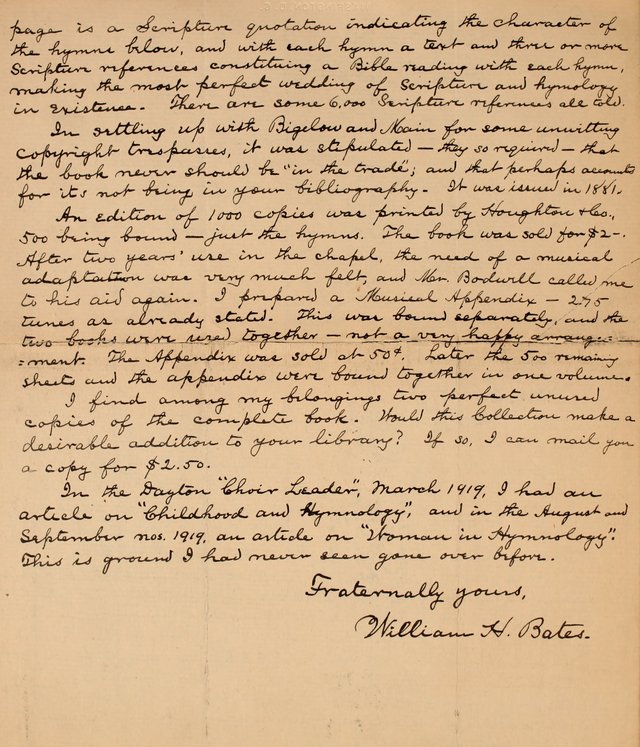 page is a Scripture quotation indicating the character of
the hymns below, and with each hymn a text and three or more
Scripture references constituting a Bible reading with each hymn,
making the most perfect wedding of Scripture and hymology
in existence. There are some 6,000 Scripture references all told.
In settling up with Bigelow and Main for some unwitting
copyright trespasses, it was stipulated – they so required – that
the book never should be "in the trade"; and that perhaps accounts
for it's not being in your bibliography. It was issued in 1881.
An edition of 1000 copies was printed by Houghton & Co.,
500 being bound – just the hymns. The book was sold for $2–.
After two years' use in the chapel, the need of a musical
adaptation was very much felt, and Mr. Bodwell called me
to his aid again. I prepared a Musical Appendix – 275
tunes as already stated. This was bound separately, and the
two books were used together – not a very happy arrange=
=ment. The Appendix was sold at 50¢. Later the 500 remaining
sheets and the appendix were bound together in one volume.
I find among my belongings two perfect unused
copies of the complete book. Would this Collection make a
desirable addition to your library? If so, I can mail you
a copy for $2.50.
In the Dayton "Choir Leader", March 1919, I had an
article on "Childhood and Hymnology", and in the August and
September nos. 1919, an article on "Woman in Hymnology".
This is ground I had never seen gone over before.
Fraternally yours,
William H. Bates.